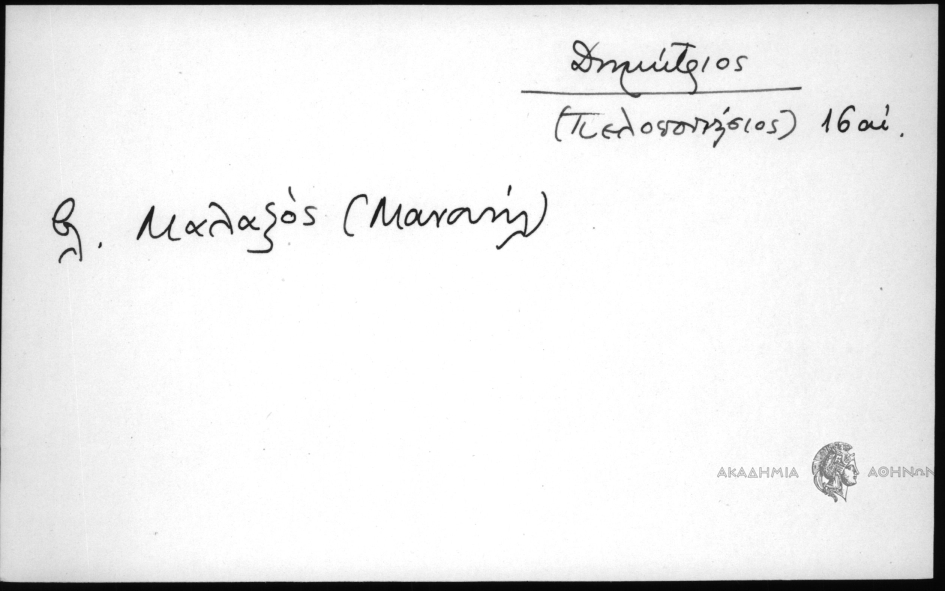 Δημήτριος
(Πελοποννήσιος) 16 αἰ.
βλ. Μαλαξὸς (Μανουὴλ)
ΑΚΑΔΗΜΙΑ ΑΘΗΝΩΝ